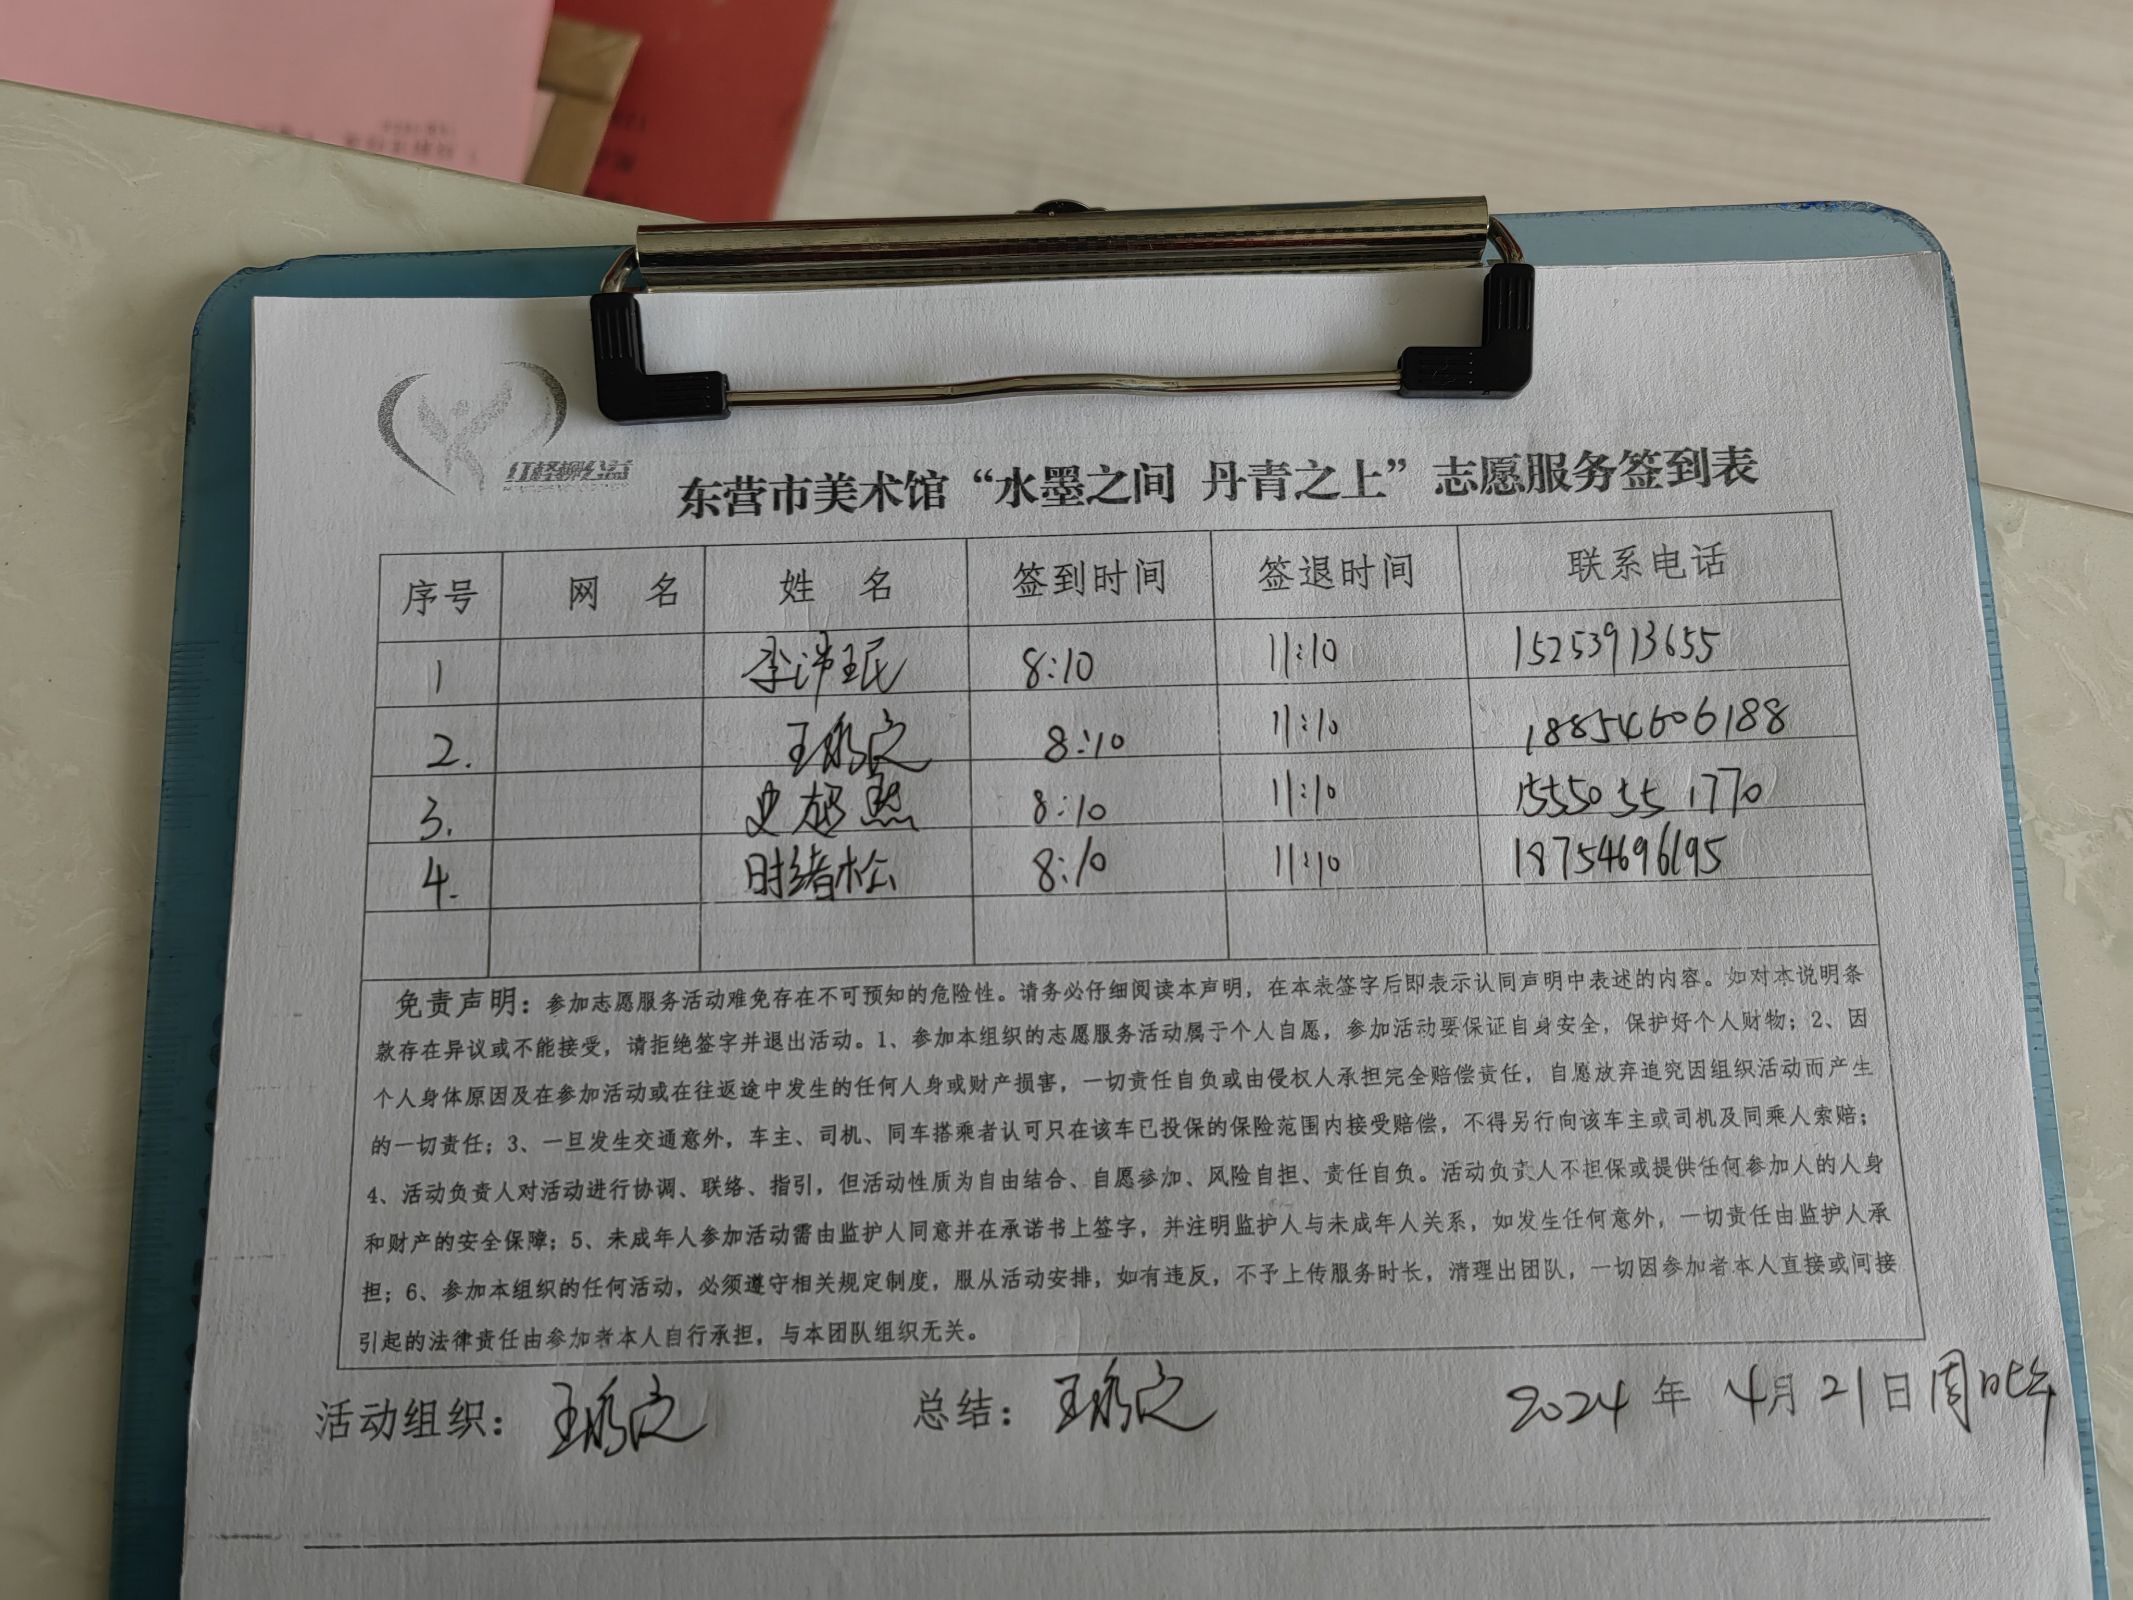 红柽柳公益
东营市美术馆“水墨之间 丹青之上”志愿服务签到表
序号 网 名 姓 名 签到时间 签退时间 联系电话
1 8:10 11:10 15253913655
2. 8:10 11:10 18854606188
3. 8:10 11:10 15550551770
4. 时绪松 8:10 11:10 18754696195
免责声明：参加志愿服务活动难免存在不可预知的危险性。请务必仔细阅读本声明，在本表签字后即表示认同声明中表述的内容。如对本说明条
款存在异议或不能接受，请拒绝签字并退出活动。1、参加本组织的志愿服务活动属于个人自愿，参加活动要保证自身安全，保护好个人财物；2、因
个人身体原因及在参加活动或在往返途中发生的任何人身或财产损害，一切责任自负或由侵权人承担完全赔偿责任，自愿放弃追究因组织活动而产生
的一切责任；3、一旦发生交通意外，车主、司机、同车搭乘者认可只在该车已投保的保险范围内接受赔偿，不得另行向该车主或司机及同乘人索赔；
4、活动负责人对活动进行协调、联络、指引，但活动性质为自由结合、自愿参加、风险自担、责任自负。活动负责人不担保或提供任何参加人的人身
和财产的安全保障；5、未成年人参加活动需由监护人同意并在承诺书上签字，并注明监护人与未成年人关系，如发生任何意外，一切责任由监护人承
担；6、参加本组织的任何活动，必须遵守相关规定制度，服从活动安排，如有违反，不予上传服务时长，清理出团队，一切因参加者本人直接或间接
引起的法律责任由参加者本人自行承担，与本团队组织无关。
活动组织： 总结： 2024 年 4月 21日 周日上午